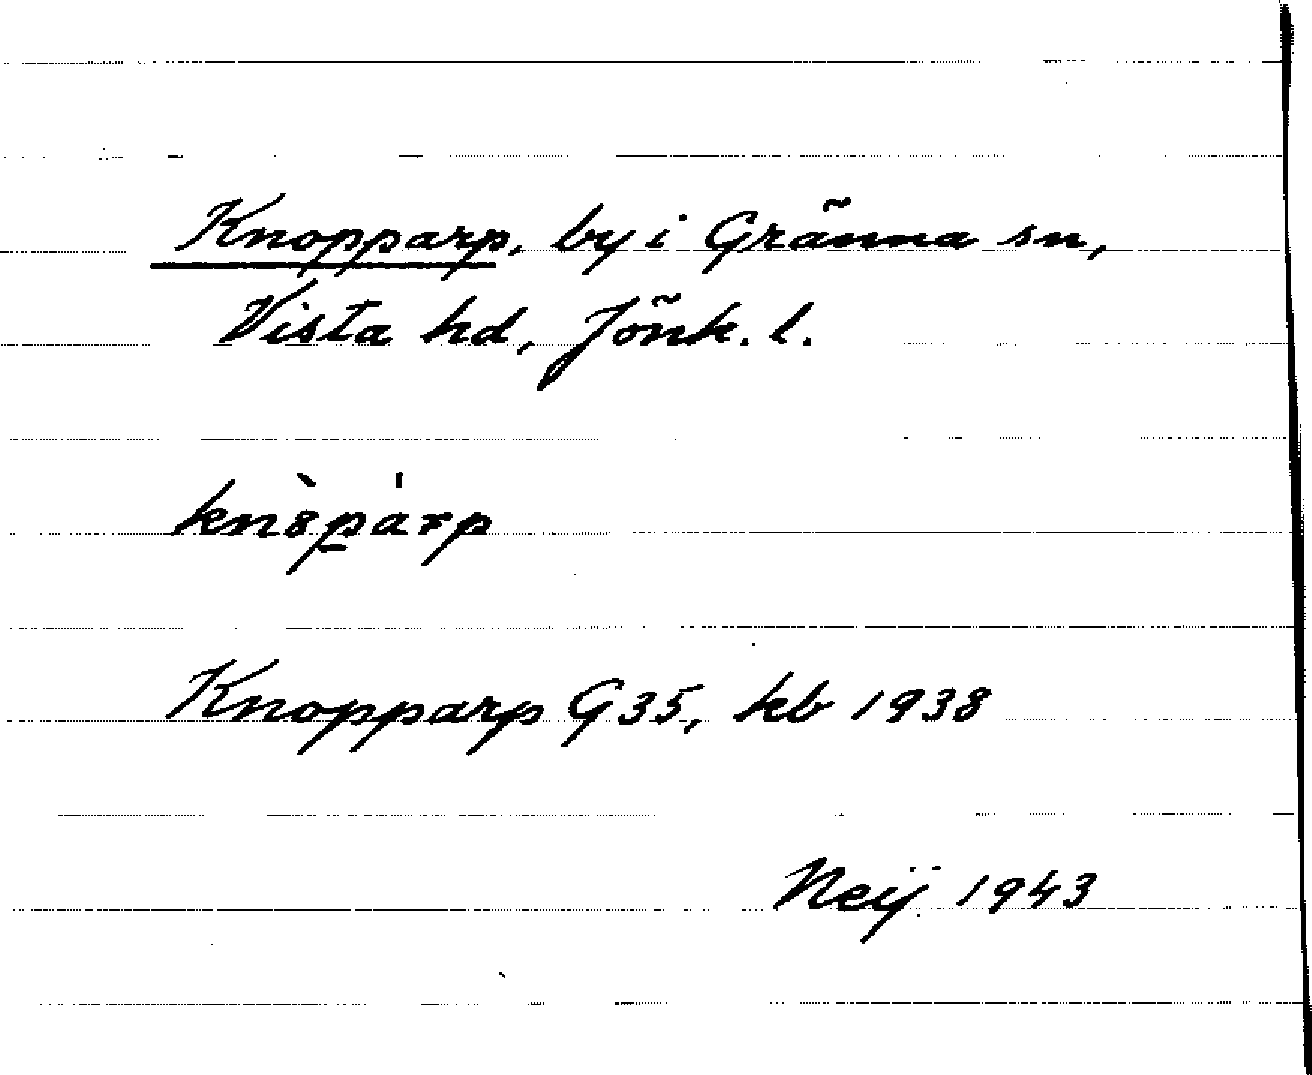 Knopparp, by i Gränna sn,
Vista hd, Jönk. l.
kn8̀p̠a̍rp
Knopparp G35, kb 1938
Neij 1943